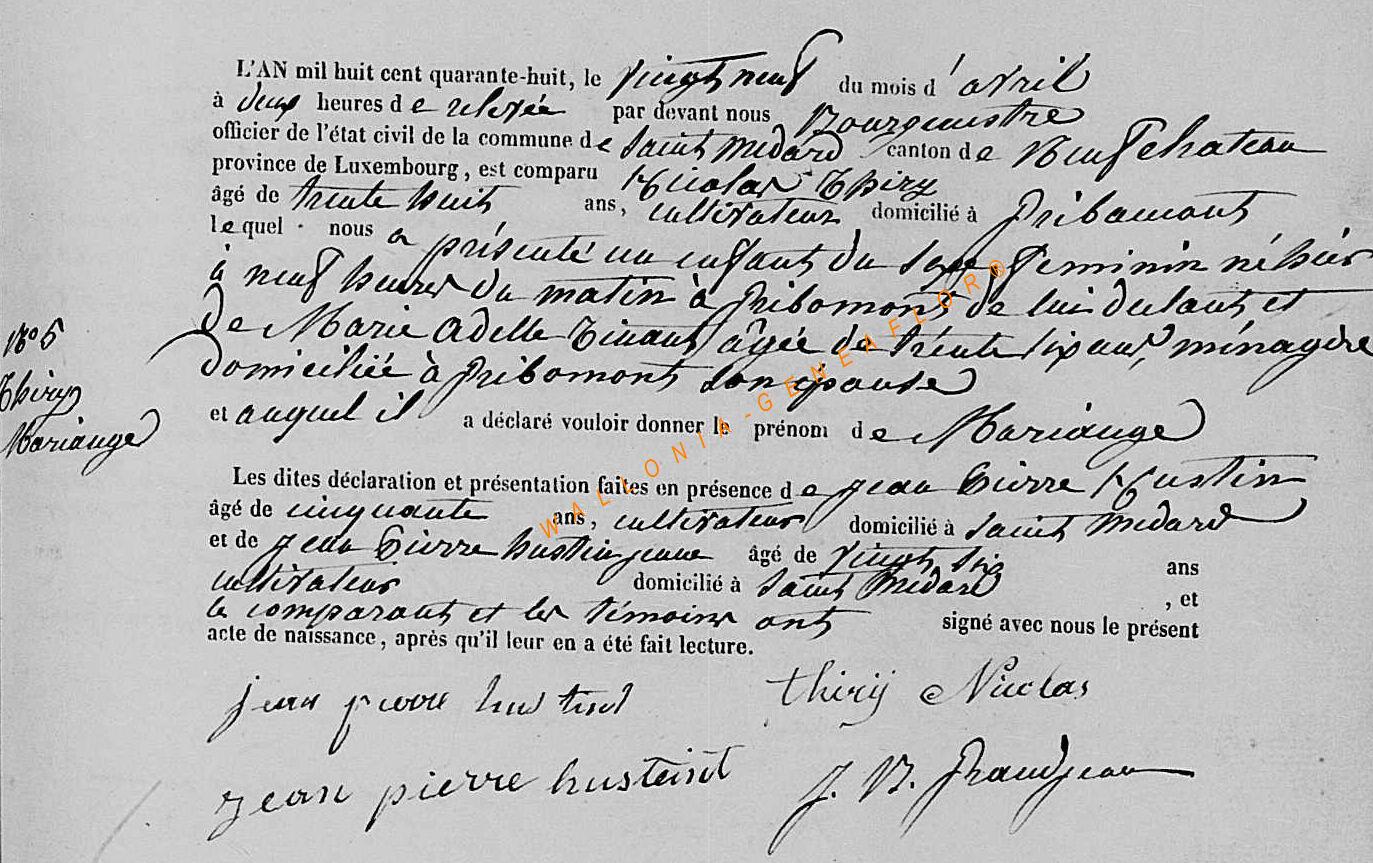 L'AN mil huit cent quarante-huit, le vingt neuf du mois d'avril
à deux heures de relevée par devant nous Bourgmestre
officier de l'état civil de la commune de Saint Medard canton de Neufchateau
province de Luxembourg, est comparu Nicolas Thiry
âgé de trente huit ans, cultivateur domicilié à Gribaumont
lequel nous a présenté un enfant du sexe feminin né hier
à neuf heures du matin à Gribomont de lui declarant et
de Marie Adelle Tinant âgée de trente six ans, ménagère
domiciliée à Gribomont son epouse
et auquel il a déclaré vouloir donner le prénom de Mariange
Les dites déclaration et présentation faites en présence de Jean Pierre Hustin
âgé de cinquante ans, cultivateur domicilié à Saint Medard
et de Jean Pierre hustin jeune âgé de vingt six ans
cultivateur domicilié à Saint Medard, et
le comparant et les témoins ont signé avec nous le présent
acte de naissance, après qu'il leur en a été fait lecture.
Thiry
Mariange
jean pierre hustint
thirij Nicolas
jean pierre husteint
J. B. Grandjean
WALLONIA-GENEAFLOR®